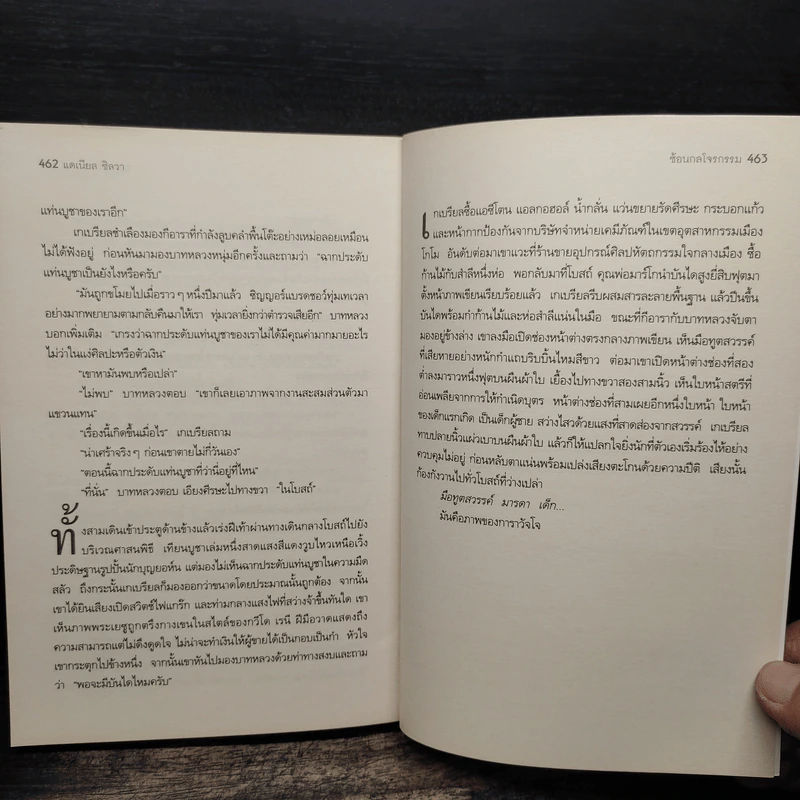 462 แดเนียล ซิลวา
แท่นบูชาของเราอีก"
เกเบรียลชำเลืองมองกีอาราที่กำลังลูบคลำพื้นโต๊ะอย่างเหม่อลอยเหมือน
ไม่ได้ฟังอยู่ ก่อนหันมามองบาทหลวงหนุ่มอีกครั้งและถามว่า "ฉากประดับ
แท่นบูชาเป็นยังไงหรือครับ"
"มันถูกขโมยไปเมื่อราว ๆ หนึ่งปีมาแล้ว ซิญญอร์แบรดชอว์ทุ่มเทเวลา
อย่างมากพยายามตามกลับคืนมาให้เรา ทุ่มเวลายิ่งกว่าตำรวจเสียอีก" บาทหลวง
บอกเพิ่มเติม "เกรงว่าฉากประดับแท่นบูชาของเราไม่ได้มีคุณค่ามากมายอะไร
ไม่ว่าในแง่ศิลปะหรือตัวเงิน"
"เขาหามันพบหรือเปล่า"
"ไม่พบ" บาทหลวงตอบ "เขาก็เลยเอาภาพจากงานสะสมส่วนตัวมา
แขวนแทน"
"เรื่องนี้เกิดขึ้นเมื่อไร" เกเบรียลถาม
"น่าเศร้าจริง ๆ ก่อนเขาตายไม่กี่วันเอง"
"ตอนนี้ฉากประดับแท่นบูชาที่ว่านี่อยู่ที่ไหน"
"ที่นั่น" บาทหลวงตอบ เอียงศีรษะไปทางขวา "ในโบสถ์"
ทั้งสามเดินเข้าประตูด้านข้างแล้วเร่งฝีเท้าผ่านทางเดินกลางโบสถ์ไปยัง
บริเวณศาสนพิธี เทียนบูชาเล่มหนึ่งสาดแสงสีแดงวูบไหวเหนือเวิ้ง
ประดิษฐานรูปปั้นนักบุญยอห์น แต่มองไม่เห็นฉากประดับแท่นบูชาในความมืด
สลัว ถึงกระนั้นเกเบรียลก็มองออกว่าขนาดโดยประมาณนั้นถูกต้อง จากนั้น
เขาได้ยินเสียงเปิดสวิตช์ไฟแกร๊ก และท่ามกลางแสงไฟที่สว่างจ้าขึ้นทันใด เขา
เห็นภาพพระเยซูถูกตรึงกางเขนในสไตล์ของกวีโด เรนี ฝีมือวาดแสดงถึง
ความสามารถแต่ไม่ดึงดูดใจ ไม่น่าจะทำเงินให้ผู้ขายได้เป็นกอบเป็นกำ หัวใจ
เขากระตุกไปข้างหนึ่ง จากนั้นเขาหันไปมองบาทหลวงด้วยท่าทางสงบและถาม
ว่า "พอจะมีบันไดไหมครับ"
ซ้อนกลโจรกรรม 463
เกเบรียลซื้อแอซีโตน แอลกอฮอล์ น้ำกลั่น แว่นขยายรัดศีรษะ กระบอกแก้ว
และหน้ากากป้องกันจากบริษัทจำหน่ายเคมีภัณฑ์ในเขตอุตสาหกรรมเมือง
โกโม อันดับต่อมาเขาแวะที่ร้านขายอุปกรณ์ศิลปหัตถกรรมใจกลางเมือง ซื้อ
ก้านไม้กับสำลีหนึ่งห่อ พอกลับมาที่โบสถ์ คุณพ่อมาร์โกนำบันไดสูงยี่สิบฟุตมา
ตั้งหน้าภาพเขียนเรียบร้อยแล้ว เกเบรียลรีบผสมสารละลายพื้นฐาน แล้วปีนขึ้น
บันไดพร้อมกำก้านไม้และห่อสำลีแน่นในมือ ขณะที่กีอารากับบาทหลวงจับตา
มองอยู่ข้างล่าง เขาลงมือเปิดช่องหน้าต่างตรงกลางภาพเขียน เห็นมือทูตสวรรค์
ที่เสียหายอย่างหนักกำแถบริบบิ้นไหมสีขาว ต่อมาเขาเปิดหน้าต่างช่องที่สอง
ต่ำลงมาราวหนึ่งฟุตบนผืนผ้าใบ เยื้องไปทางขวาสองสามนิ้ว เห็นใบหน้าสตรีที่
อ่อนเพลียจากการให้กำเนิดบุตร หน้าต่างช่องที่สามเผยอีกหนึ่งใบหน้า ใบหน้า
ของเด็กแรกเกิด เป็นเด็กผู้ชาย สว่างไสวด้วยแสงที่สาดส่องจากสวรรค์ เกเบรียล
ทาบปลายนิ้วแผ่วเบาบนผืนผ้าใบ แล้วก็ให้แปลกใจยิ่งนักที่ตัวเองเริ่มร้องไห้อย่าง
ควบคุมไม่อยู่ ก่อนหลับตาแน่นพร้อมเปล่งเสียงตะโกนด้วยความปีติ เสียงนั้น
ก้องกังวานไปทั่วโบสถ์ที่ว่างเปล่า
มือทูตสวรรค์ มารดา เด็ก...
มันคือภาพของการาวัจโจ